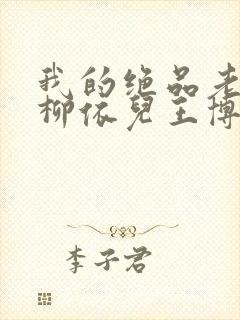 我的绝品老
柳依儿王博
李子君